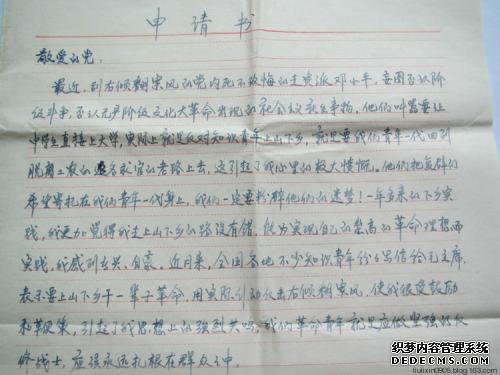 申请书
敬爱的党:
最近,刮右倾翻案风的党内死不改悔的走资派邓小平,妄图否认阶
级斗争,否认无产阶级文化大革命出现的社会主义新生事物,他们叫嚣要让
中学生直接上大学,实际上就是反对知识青年上山下乡,就是要我们青年一代回到
脱离工农的追名求官的老路上去,这引起了我心里的极大愤慨。他们把复辟的
希望寄托在我们青年一代身上,我们一定要粉碎他们的迷梦!一年多来的下乡实
践,我更加觉得我走上山下乡的路没有错,能为实现自己的崇高的革命理想而
实践,我感到高兴、自豪。近月来,全国各地不少知识青年纷纷写信给毛主席,
表示要上山下乡干一辈子革命,用实际行动反击右倾翻案风,使我很受鼓励
和鞭策,引起了我思想上的强烈共鸣。我们革命青年就是应做坚强的反
修战士,应该永远扎根在群众之中。
织梦内容管理系统
DEDECMS.COM
http://liulixin0906.blog.163.com